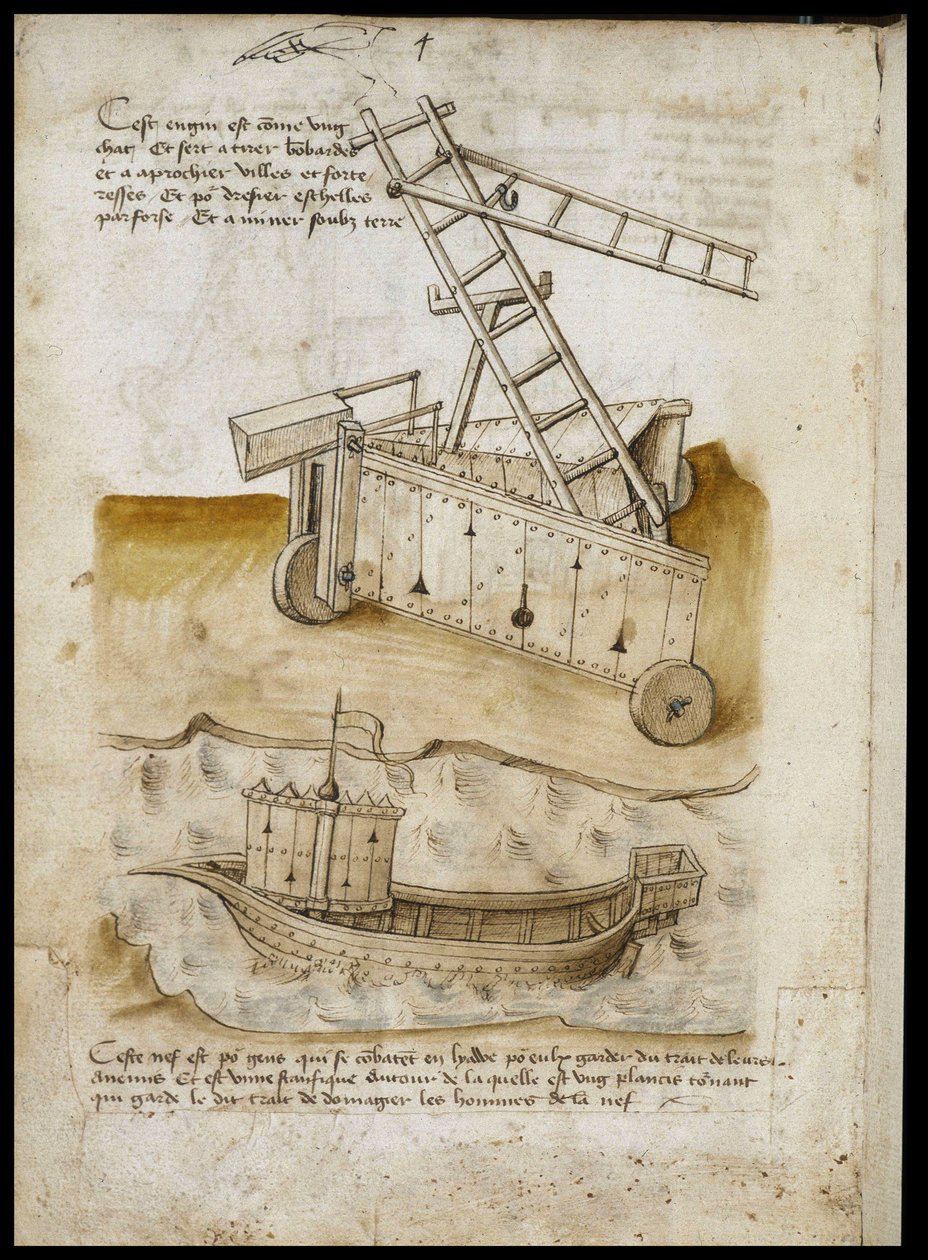 4
Cest engin est cōme vng
chat Et sert a tirer bōbardes
et a aprochier villes et forte
resses Et po dresser eschelles
par forse Et a miner soubz terre
Ceste nef est po gens qui se cōbatet en lyawe po eulx garder du trait de leurs
anemis Et est vnne autour de la quelle est vng plancis tōnant
qui garde le dit trait de domagier les hommes de la nef